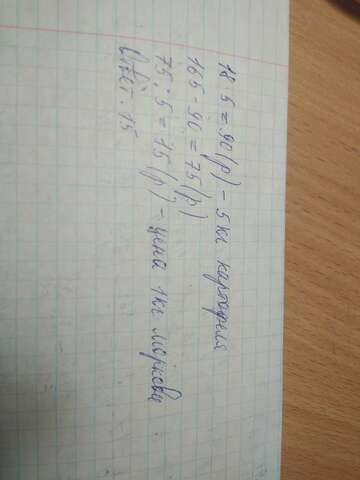 18·5=90(р) - 5 кг картофеля
165-90=75(р)
75:5=15(р) - цена 1кг моркови.
Ответ. 15